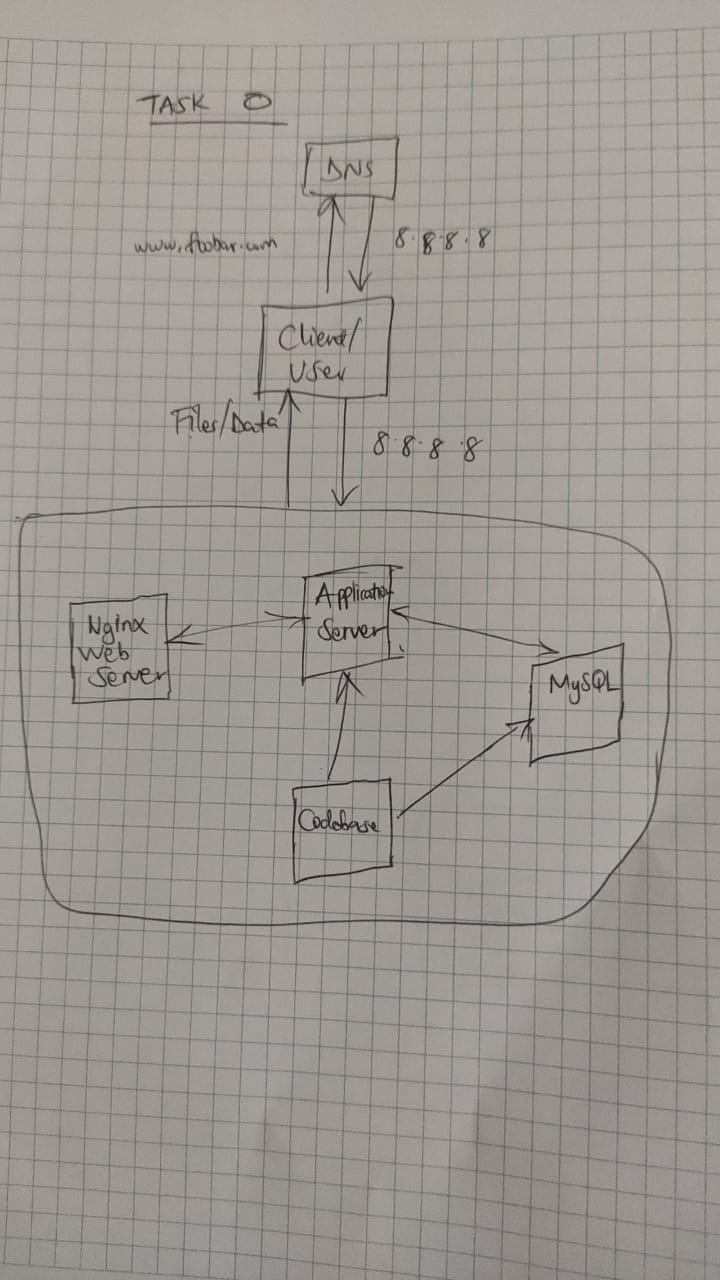 TASK 0
DNS
www.foobar.com
8.8.8.8
Client/
User
Files/Data
8.8.8.8
Nginx
Web
Server
Application
Server
MySQL
Codebase